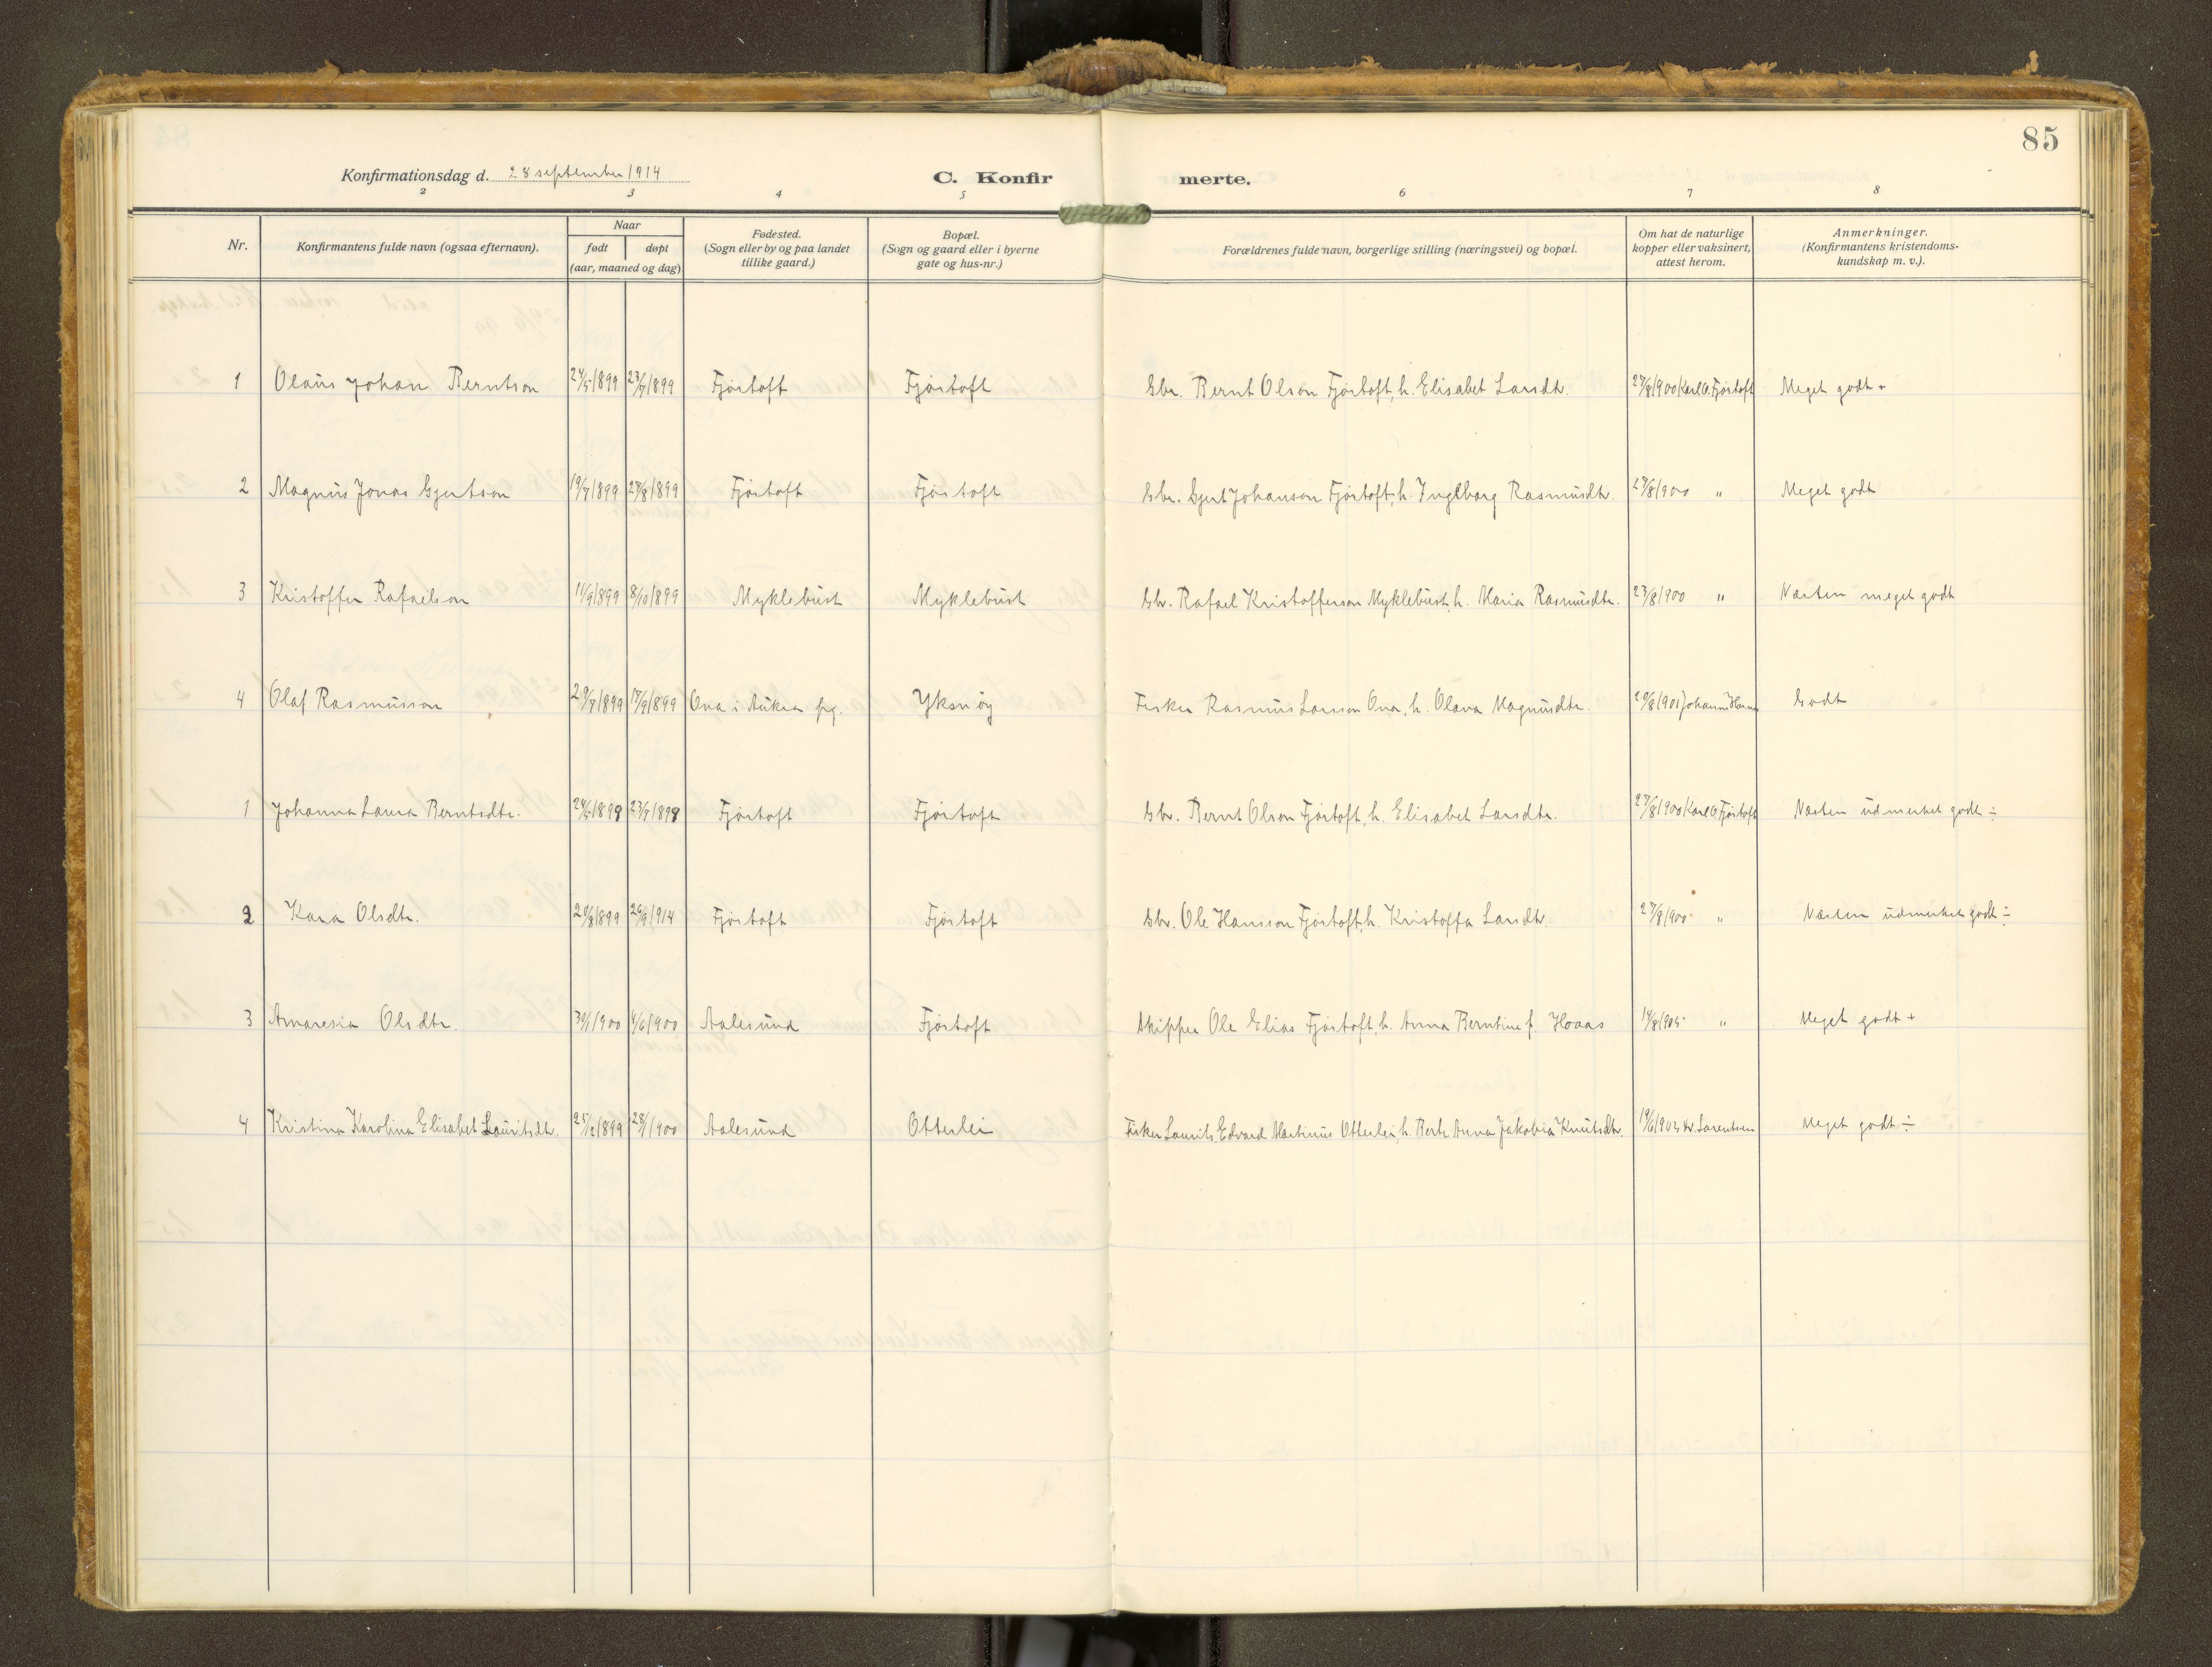 85
Konfirmationsdag d. 28 september 1914
C. Konfirmerte.
2 3 4 5 6 7 8
Nr. Konfirmantens fulde navn (ogsaa efternavn). Naar født døpt (aar, maaned og dag) Fødested. (Sogn eller by og paa landet tillike gaard.) Bopæl. (Sogn og gaard eller i byerne gate og hus-nr.) Forældrenes fulde navn, borgerlige stilling (næringsvei) og bopæl. Om hat de naturlige kopper eller vaksinert, attest herom. Anmerkninger. (Konfirmantens kristendoms-kundskap m. v.).
1 Olaus Johan Berntson 24/5 1899 23/7 1899 Fjørtoft Fjørtoft Gbr. Bernt Olson Fjørtoft, h. Elisabet Larsdtr. 27/8 1900 Karl O. Fjørtoft Meget godt +
2 Magnus Jonas Gjertson 19/7 1899 27/8 1899 Fjørtoft Fjørtoft Gbr. Gjert Johanson Fjørtoft, h. Ingeborg Rasmusdtr. 27/8 1900 " Meget godt
3 Kristoffer Rafaelson 11/9 1899 8/10 1899 Myklebust Myklebust Gbr. Rafael Kristofferson Myklebust, h. Maria Rasmusdtr. 23/8 1900 " Næsten meget godt
4 Olaf Rasmusson 29/7 1899 17/9 1899 Ona i Aukra pg. Yksnøy Fisker Rasmus Larsson Ona, h. Olava Magnusdtr. 20/8 1901 Godt
1 Johanna Laura Berntsdtr. 24/5 1899 23/7 1899 Fjørtoft Fjørtoft Gbr. Bernt Olson Fjørtoft, h. Elisabet Larsdtr. 27/8 1900 Karl O. Fjørtoft Næsten udmerket godt ÷
2 Kara Olsdtr. 20/8 1899 26/9 1914 Fjørtoft Fjørtoft Gbr. Ole Hansson Fjørtoft, h. Kristoffa Larsdtr. 27/8 1900 " Næsten udmerket godt ÷
3 Olsdtr. 30/1 1900 4/6 1900 Aalesund Fjørtoft Skipper Ole Elias Fjørtoft, h. Anna Berntine f. Hoaas 14/8 1905 " Meget godt +
4 Kristina Karolina Elisabet Lauritsdtr. 25/12 1899 28/1 1900 Aalesund Otterlei Fisker Laurits Edvard Martinus Otterlei, h. Berte Anna Jakobia Knutsdtr. Lorentsen Meget godt ÷